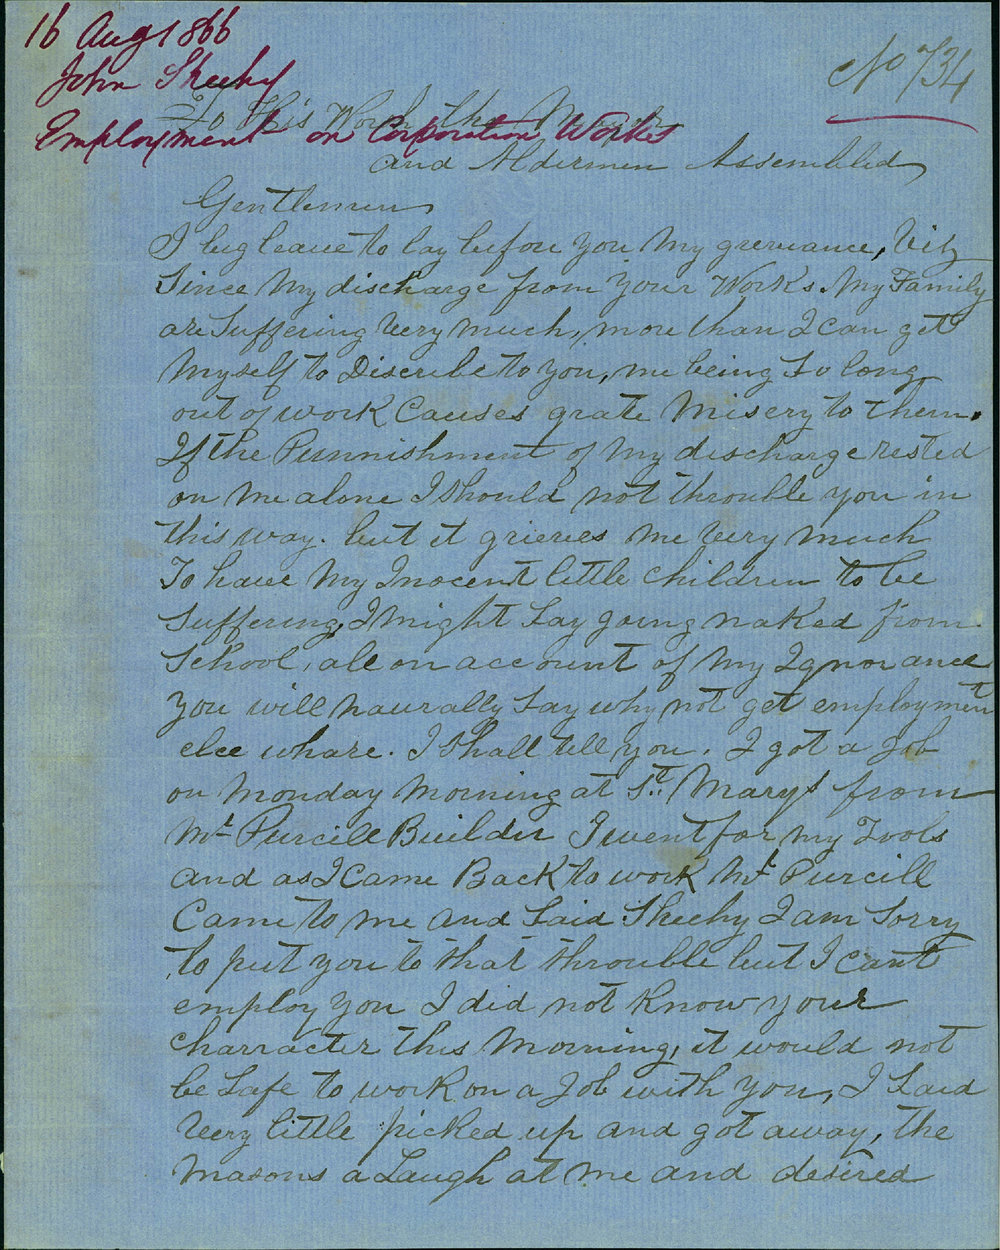 16 Aug 1866
John Sheehy
No 734
To His Worship the Mayor
Employment on Corporation Works
and Aldermen Assembled
Gentlemen
I beg leave to lay before you My greivance, Viz
Since My discharge from Your Works. My Family
are Suffering Very Much, more than I can get
Myself to Discribe to you, me being So long
out of work Causes grate Misery to them.
If the Punnishment of My discharge rested
on me alone I Should not throuble you in
this way. but it grieves me Very much
To have My Inocent little children to be
Suffering, I might Say going naked from
School, all on account of My Ignorance
You will naurally Say why not get employment
elce whare. I Shall tell you. I got a Job
on Monday Morning at St. Marys from
Mr Purcill Builder I went for my Tools
and as I Came Back to work Mr Purcill
Came to me and Said Sheehy I am Sorry
to put you to that throuble but I cant
employ You I did not Know your
charracter this Morning, it would not
be Safe to work on a Job with you, I Said
Very little picked up and got away, the
Masons a Laugh at me and desired